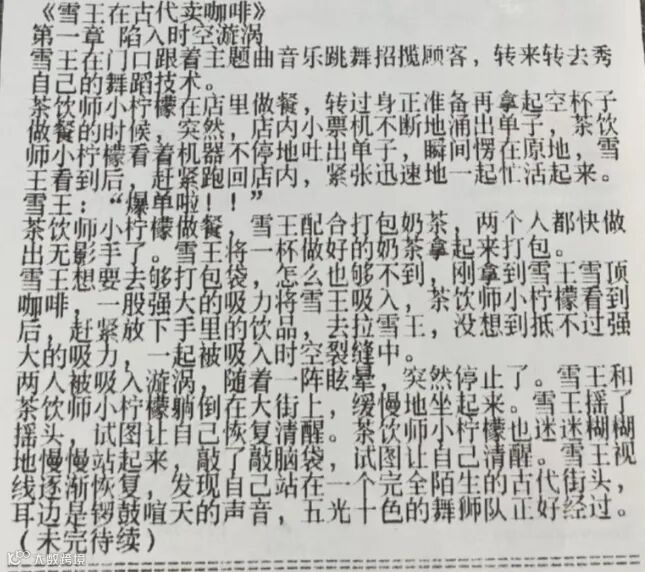 《雪王在古代卖咖啡》
第一章 陷入时空漩涡
雪王在门口跟着主题曲音乐跳舞招揽顾客，转来转去秀
自己的舞蹈技术。
茶饮师小柠檬在店里做餐，转过身正准备再拿起空杯子
做餐的时候，突然，店内小票机不断地涌出单子，茶饮
师小柠檬看着机器不停地吐出单子，瞬间愣在原地，雪
王看到后，赶紧跑回店内，紧张迅速地一起忙活起来。
雪王：“爆单啦！！”
茶饮师小柠檬做餐，雪王配合打包奶茶，两个人都快做
出无影手了。雪王将一杯做好的奶茶拿起来打包。
雪王想要去够打包袋，怎么也够不到，刚拿到雪王雪顶
咖啡，一股强大的吸力将雪王吸入，茶饮师小柠檬看到
后，赶紧放下手里的饮品，去拉雪王，没想到抵不过强
大的吸力，一起被吸入时空裂缝中。
两人被吸入漩涡，随着一阵眩晕，突然停止了。雪王和
茶饮师小柠檬躺倒在大街上，缓慢地坐起来。雪王摇了
摇头，试图让自己恢复清醒。茶饮师小柠檬也迷迷糊糊
地慢慢站起来，敲了敲脑袋，试图让自己清醒。雪王视
线逐渐恢复，发现自己站在一个完全陌生的古代街头，
耳边是锣鼓喧天的声音，五光十色的舞狮队正好经过。
（未完待续）
大数跨境